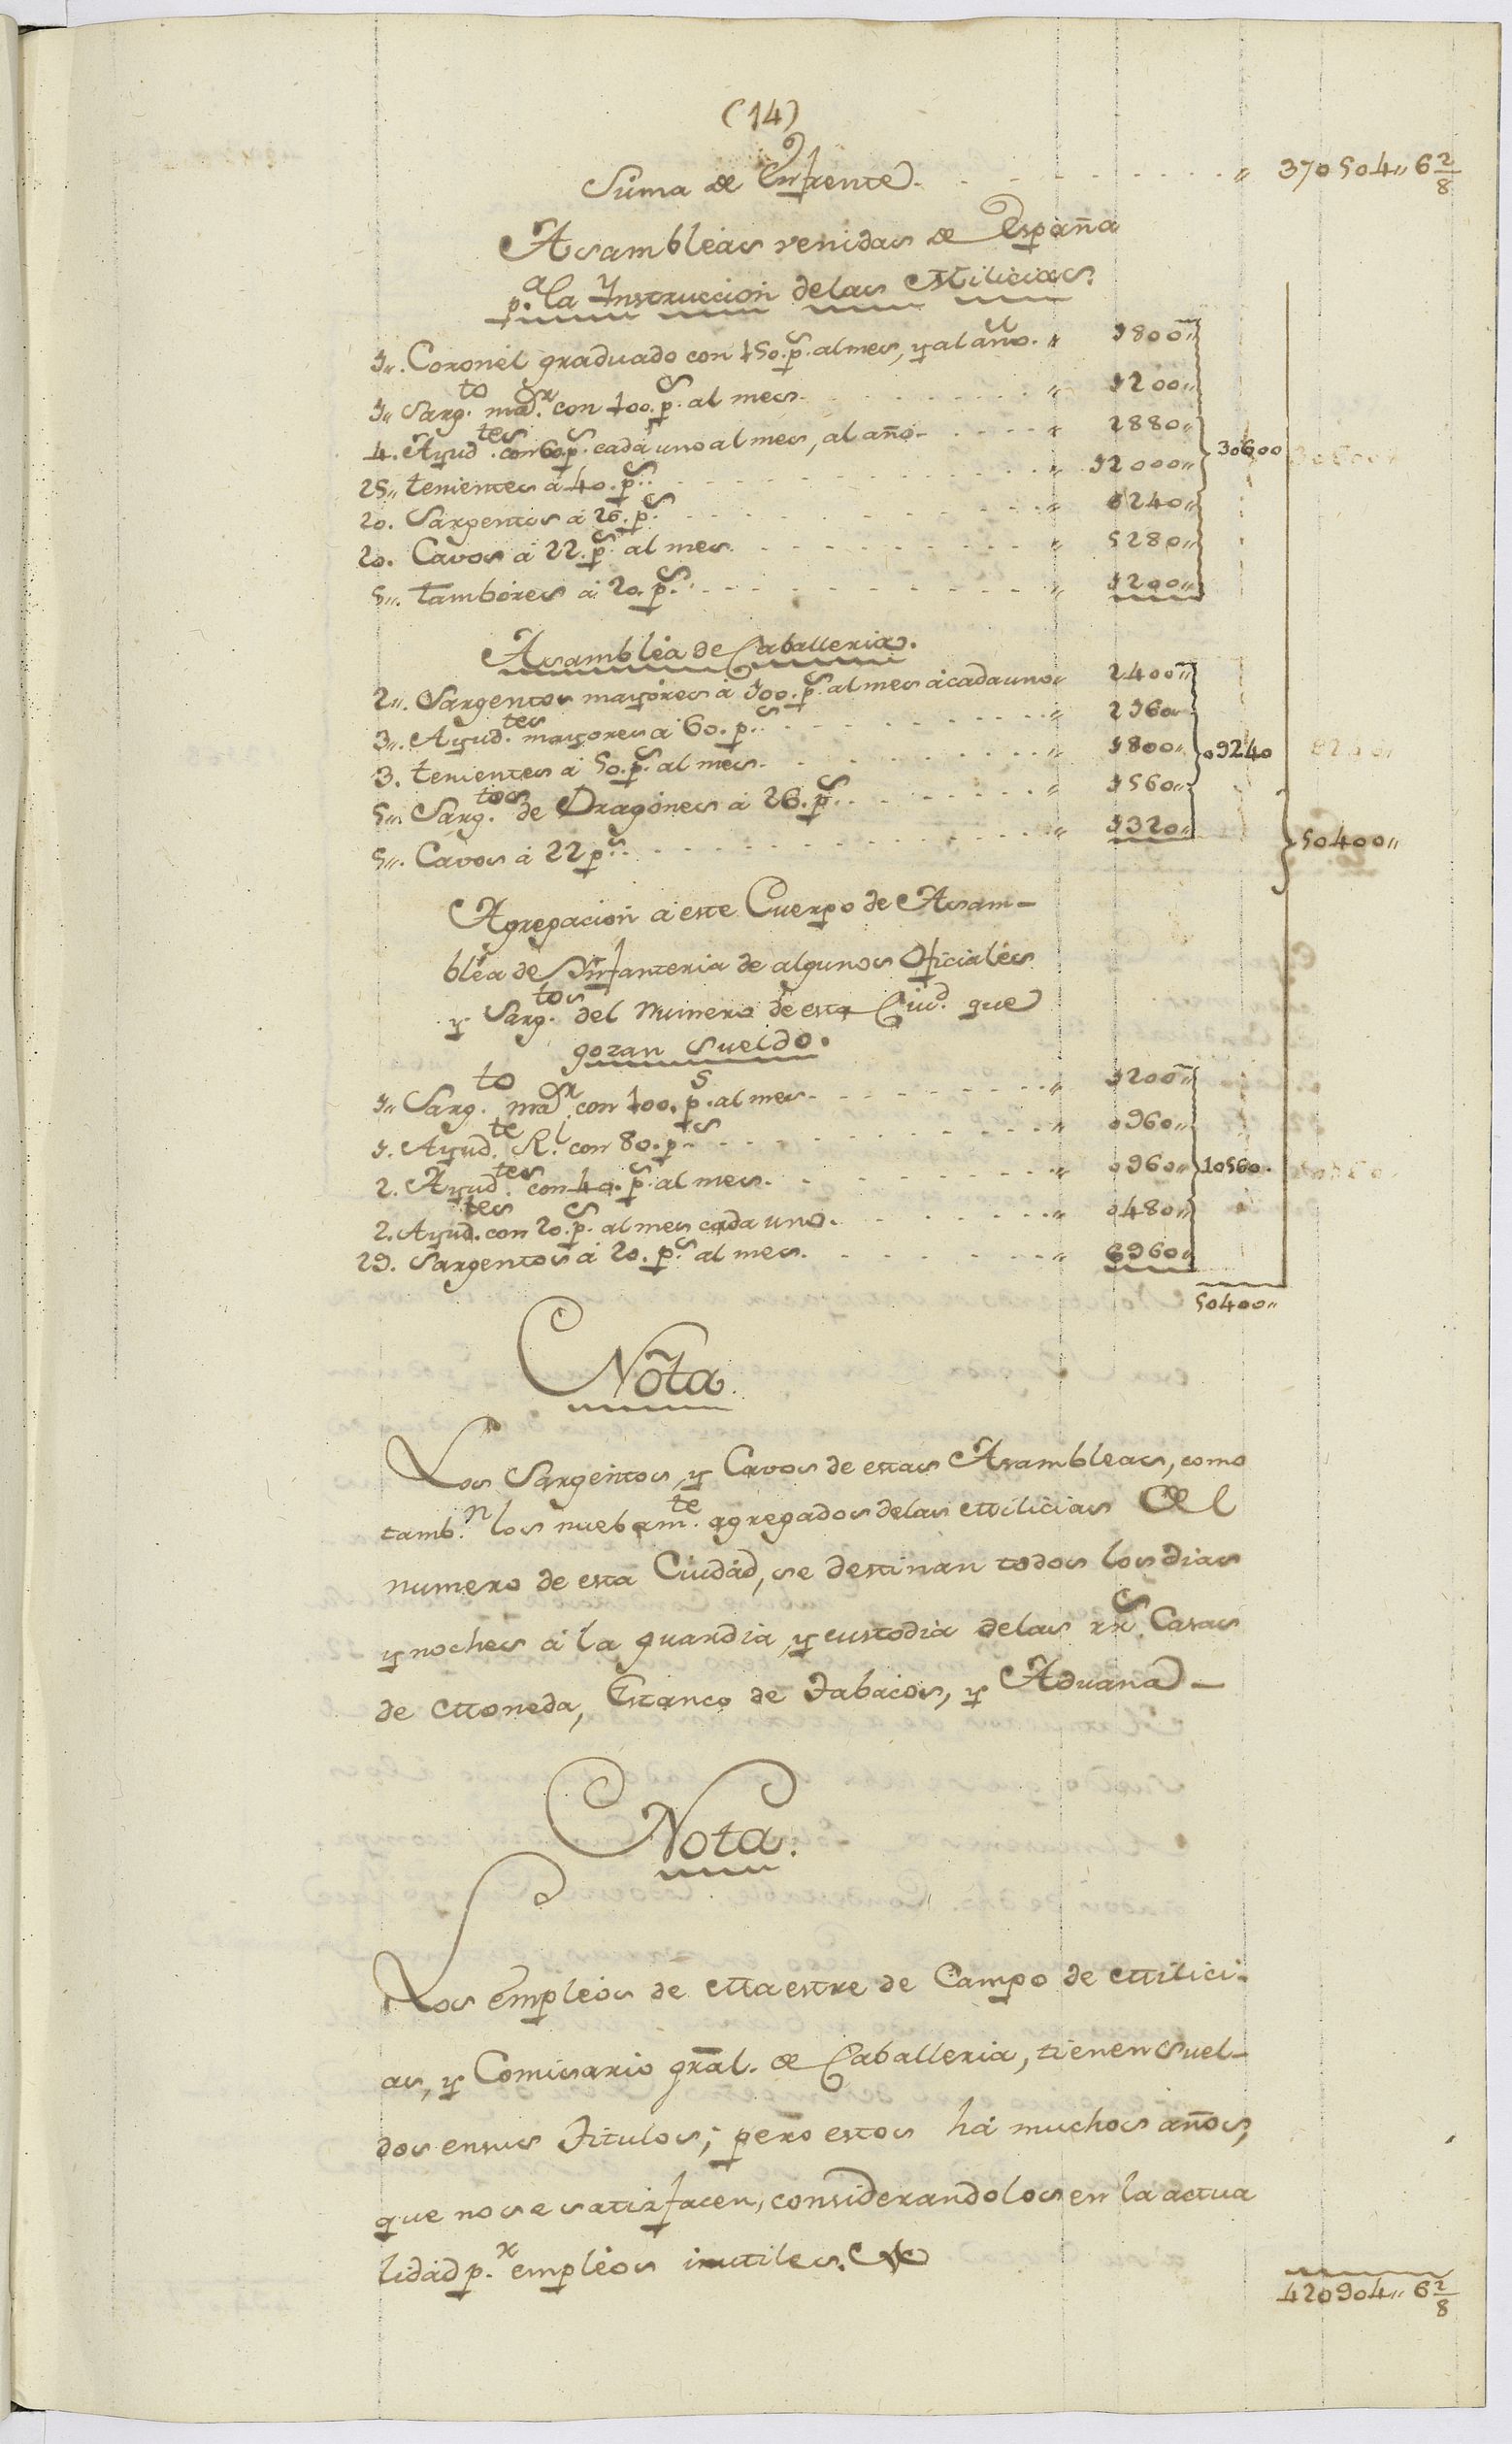 (14)
Suma de Enfrente. " 370504" 6 2/8
Asambleas venidas de España
p.ª la Ynstruccion delas Milicias.
1". Coronel graduado con 150.p.s al mes, y al año. " 1800"
1" Sarg.to ma.or con 100.p.s al mes. " 1200"
4. Ayud.tes con 60.p.s cada uno al mes, al año. " 2880"
25" tenientes á 40.p.s " 12000"
30600
20. Sargentos á 26.p.s " 6240"
20. Cavos á 22.p.s al mes. " 5280"
5". tambores á 20.p.s " 1200"
Asambléa de Caballeria.
2". Sargentos mayores á 100.p.s al mes á cada uno " 2400"
3". Ayud.tes mayores á 60.p.s " 2160"
3. tenientes á 50.p.s al mes. " 1800"
09240
5". Sarg.tos de Dragones á 26.p.s " 1560"
5". Cavos á 22 p.s " 1320"
50400"
Agregacion á este Cuerpo de Asam-
bléa de Ynfanteria de algunos Oficiales
y Sarg.tos del Numero de esta Ciud.d que
gozan sueldo.
1" Sarg.to ma.or con 100.p.s al mes. " 1200"
1. Ayud.te R.l con 80.p.s " 0960"
2. Ayud.tes con 40.p.s al mes. " 0960"
10560.
2. Ayud.tes con 20.p.s al mes cada uno. " 0480"
29. Sargentos á 20.p.s al mes. " 6960"
50400"
Nota.
Los Sargentos, y Cavos de estas Asambleas, como
tamb.n los nuebam.te agregados delas Milicias del
numero de esta Ciudad, se destinan todos los dias
y noches á la guardia, y custodia delas rr.s Casas
de Moneda, Estanco de Tabacos, y Aduana-
Nota.
Los Empleos de Maestre de Campo de Milici-
as, y Comisario gral. de Caballeria, tienen suel-
dos ensus Titulos; pero estos há muchos años,
que no se satisfacen, considerandolos en la actua
lidad p.r empléos inutiles.
420904" 6 2/8